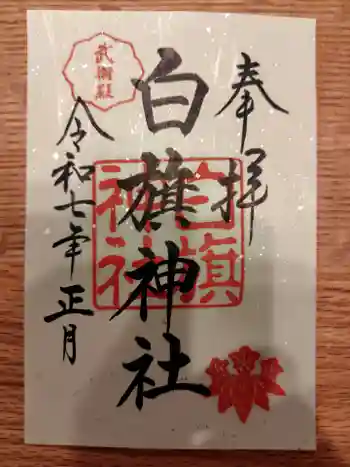 奉拝
白旗神社
令和七年正月
白旗
神社